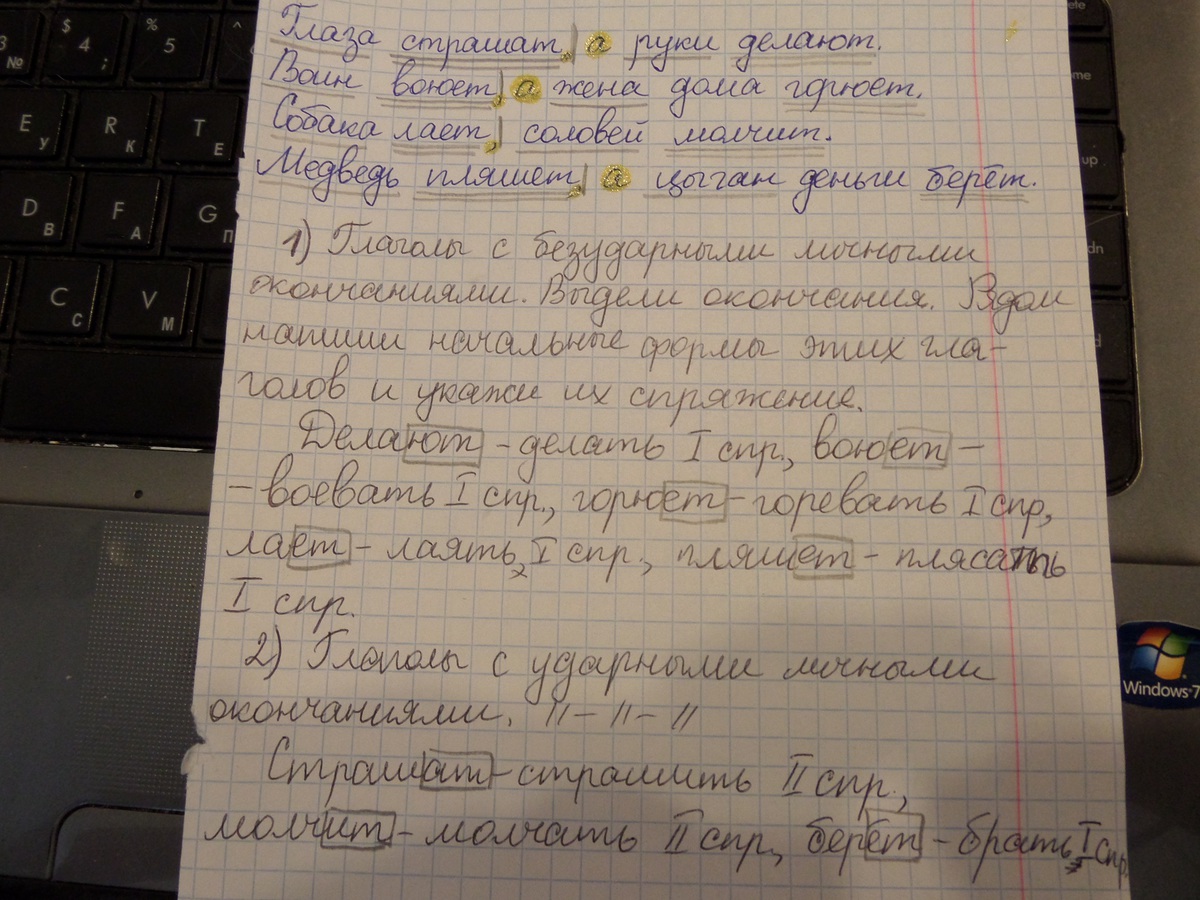 Глаза страшат, а руки делают.
Воин воюет, а жена дома горюет.
Собака лает, соловей молчит.
Медведь пляшет, а цыган деньги берёт.
1) Глаголы с безударными личными
окончаниями. Выдели окончания. Рядом
напиши начальные формы этих гла-
голов и укажи их спряжение.
Делают - делать I спр., воюет -
- воевать I спр., горюет - горевать I спр,
лает - лаять, I спр., пляшет - плясать
I спр.
2) Глаголы с ударными личными
окончаниями. 11 - 11 - 11
Страшат - страшить II спр.,
молчит - молчать II спр., берёт - брать, I спр.
$ 4 ;
% 5
3 №
E У
R К
T Е
D В
F А
G П
C С
V М
Windows 7